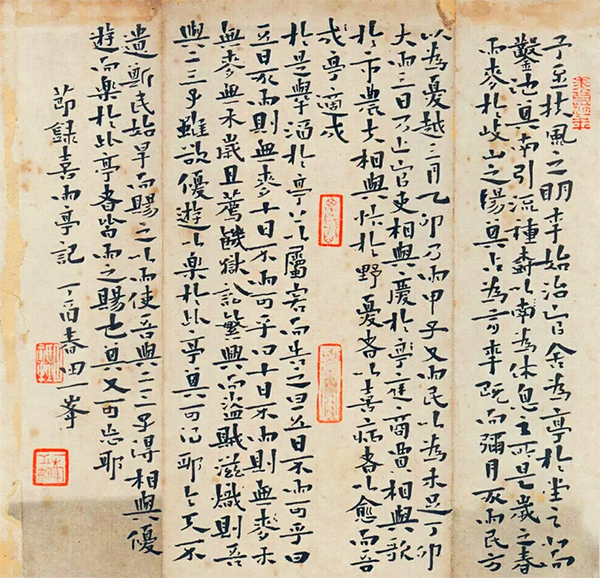 予至扶風之明年始治官舍為亭於堂之北而
鑿池其南引流種樹以為休息之所是歲之春
雨麥於岐山之陽其占為有年既而彌月不雨民方
以為憂越三月乙卯乃雨甲子又雨民以為未足丁卯
大雨三日乃止官吏相與慶於庭商賈相與歌
於市農夫相與忭於野憂者以喜病者以愈而吾
亭適成
於是舉酒於亭上以屬客而告之曰五日不雨可乎曰
五日不雨則無麥十日不雨可乎曰十日不雨則無麥禾
無麥無禾歲且薦饑獄訟繁興而盜賊滋熾則吾
與二三子雖欲優遊以樂於此亭其可得耶今天不
遺斯民始旱而賜之以雨使吾與二三子得相與優
遊而樂於此亭者皆雨之賜也其又可忘耶
節錄喜雨亭記 丁酉春田一峯